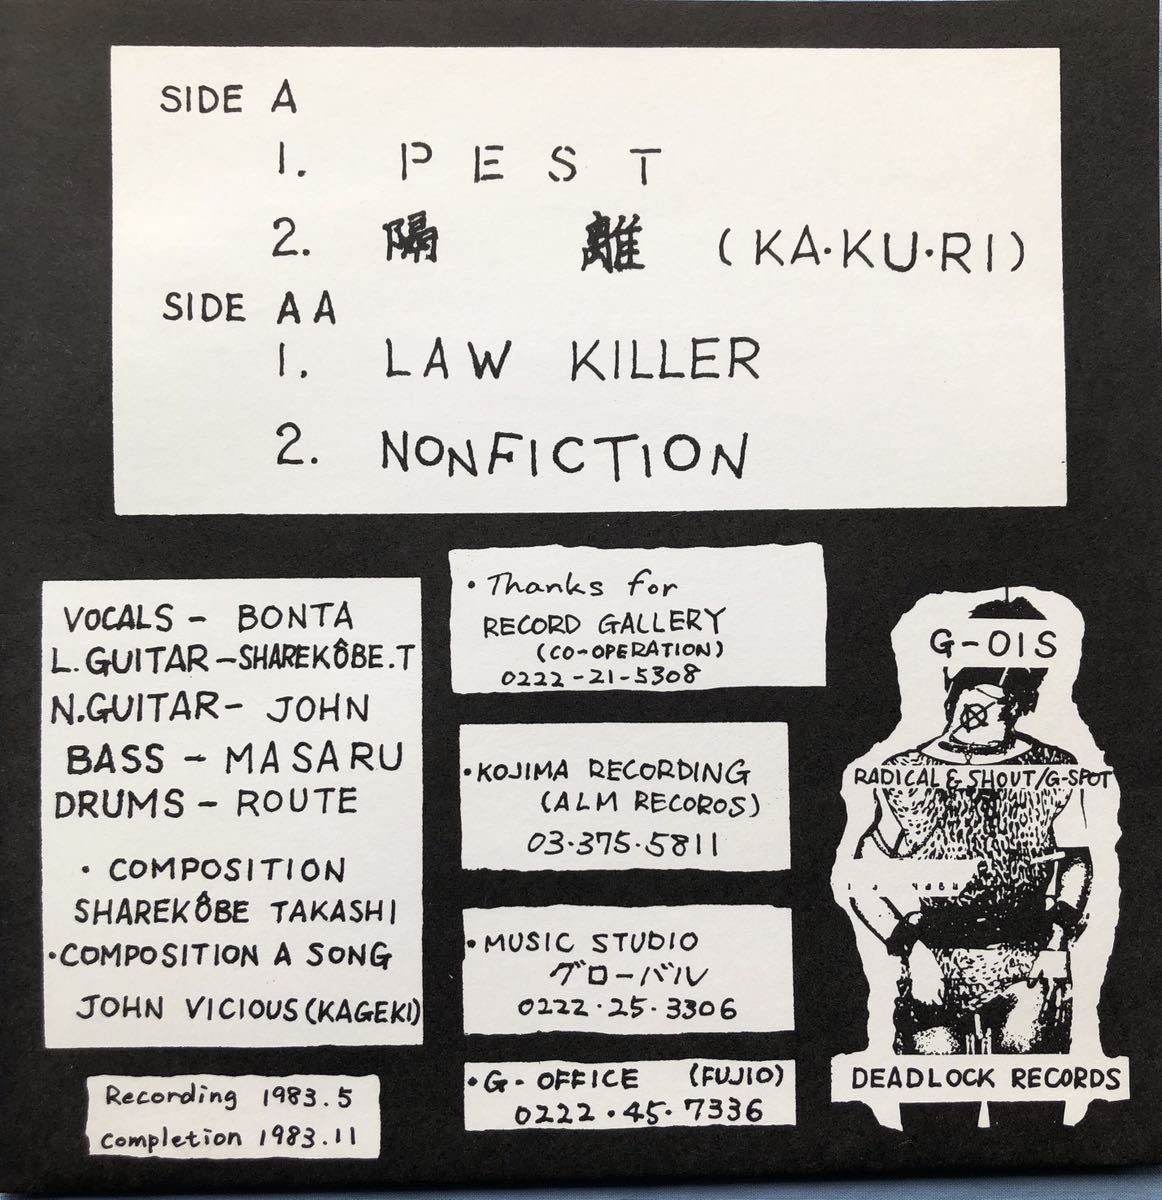 SIDE A
1. PEST
2. 隔離 (KA·KU·RI)
SIDE AA
1. LAW KILLER
2. NONFICTION
VOCALS - BONTA
L.GUITAR - SHAREKÔBE.T
N.GUITAR - JOHN
BASS - MASARU
DRUMS - ROUTE
· COMPOSITION
SHAREKÔBE TAKASHI
· COMPOSITION A SONG
JOHN VICIOUS (KAGEKI)
Recording 1983.5
Completion 1983.11
· Thanks for
RECORD GALLERY
(CO-OPERATION)
0222-21-5308
· KOJIMA RECORDING
(ALM RECOROS)
03·375·5811
· MUSIC STUDIO
グローバル
0222·25·3306
· G-OFFICE (FUJIO)
0222·45·7336
G-01S
RADICAL & SHOUT/G-SPOT
DEADLOCK RECORDS